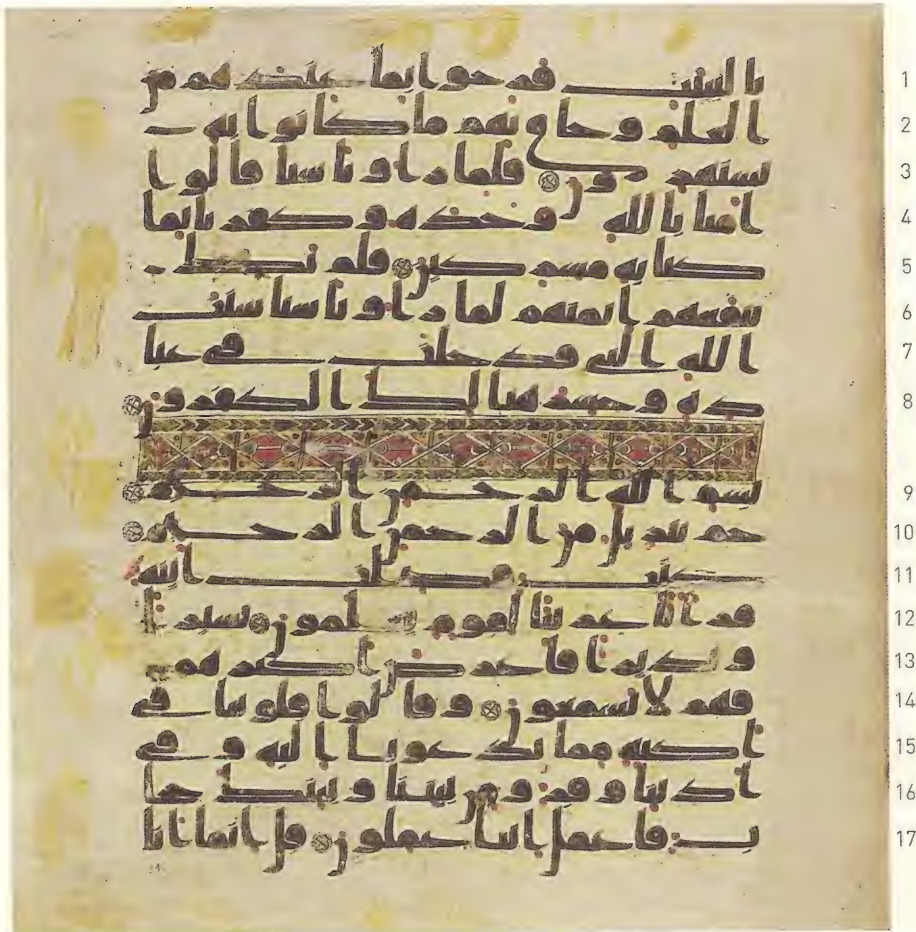 بالبينت فرحوا بما عندهم من 1
العلم وحاق بهم ما كانوا به 2
يستهزون فلما راوا باسنا قالوا 3
امنا بالله وحده وكفرنا بما 4
كنا به مشركين فلم يك 5
ينفعهم ايمنهم لما راوا باسنا سنت 6
الله التي قد خلت في عبا 7
ده وخسر هنالك الكفرون 8
بسم الله الرحمن الرحيم 9
حم تنزيل من الرحمن الرحيم 10
كتب فصلت ايته 11
قرانا عربيا لقوم يعلمون بشيرا 12
ونذيرا فاعرض اكثرهم 13
فهم لا يسمعون وقالوا قلوبنا في 14
اكنة مما تدعونا اليه وفي 15
اذاننا وقر ومن بيننا وبينك حجا 16
ب فاعمل اننا عملون قل انما انا 17